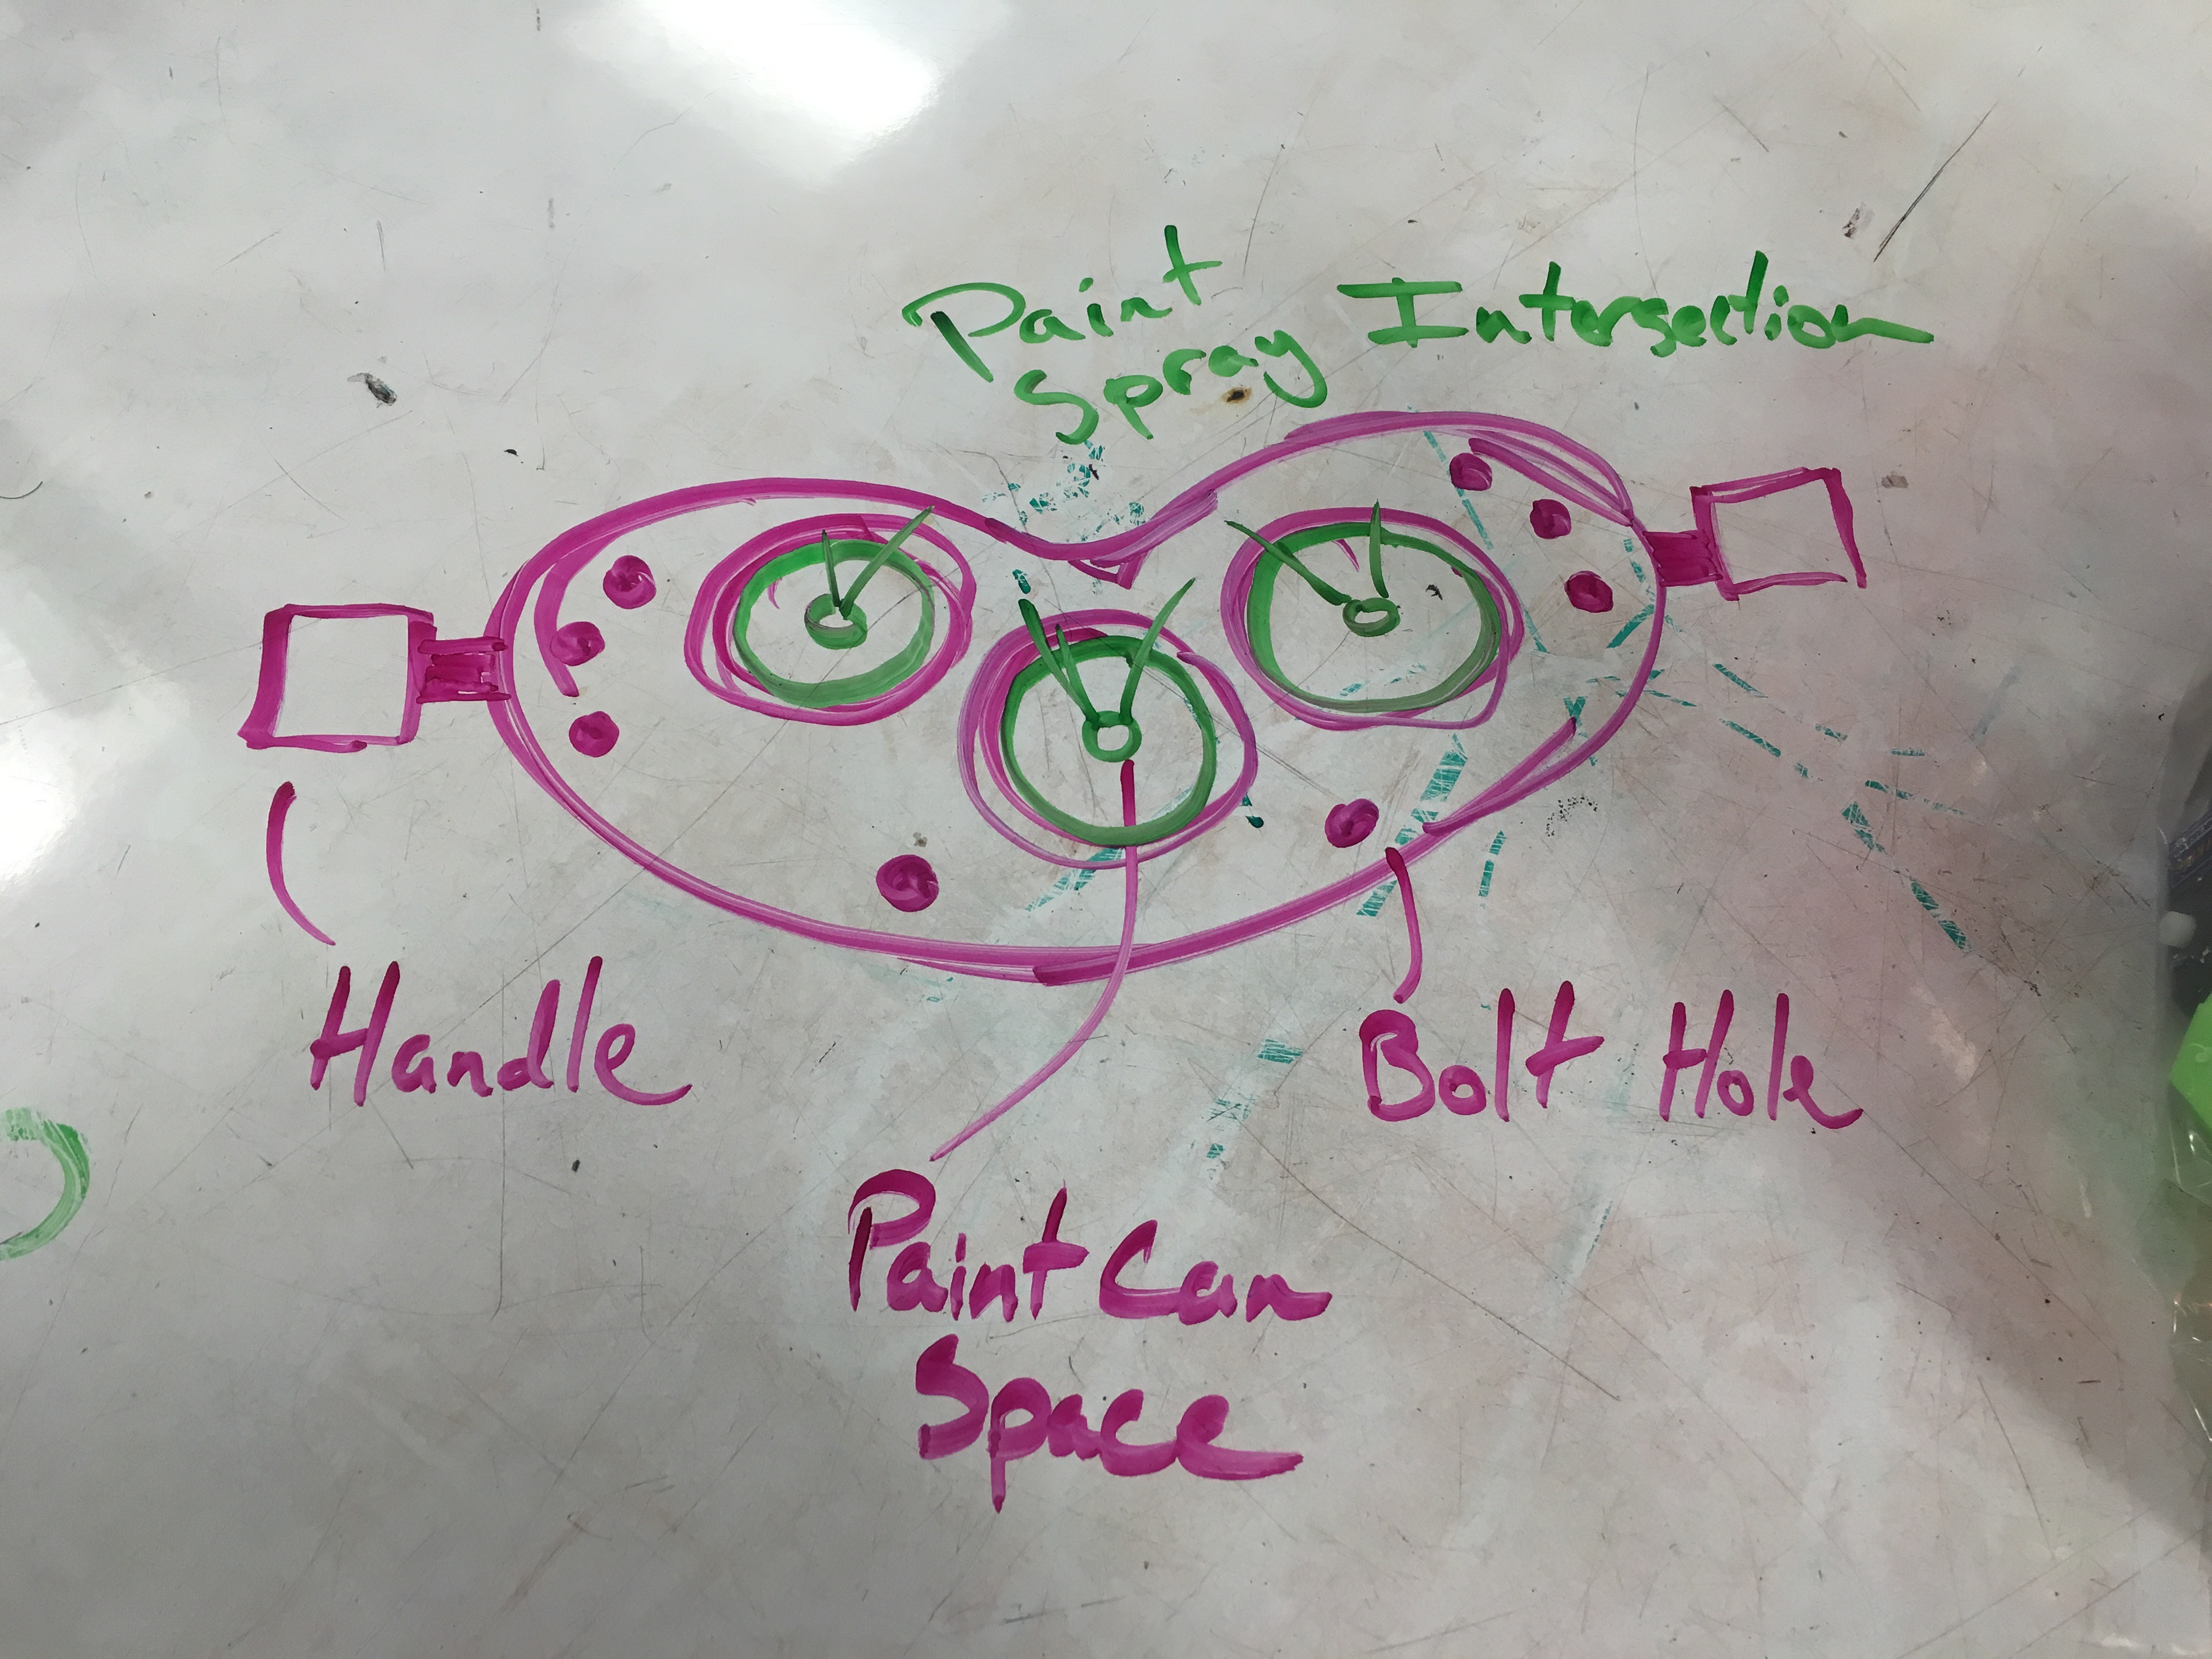 Paint
Spray Intersection
Handle
Bolt Hole
Paint Can
Space